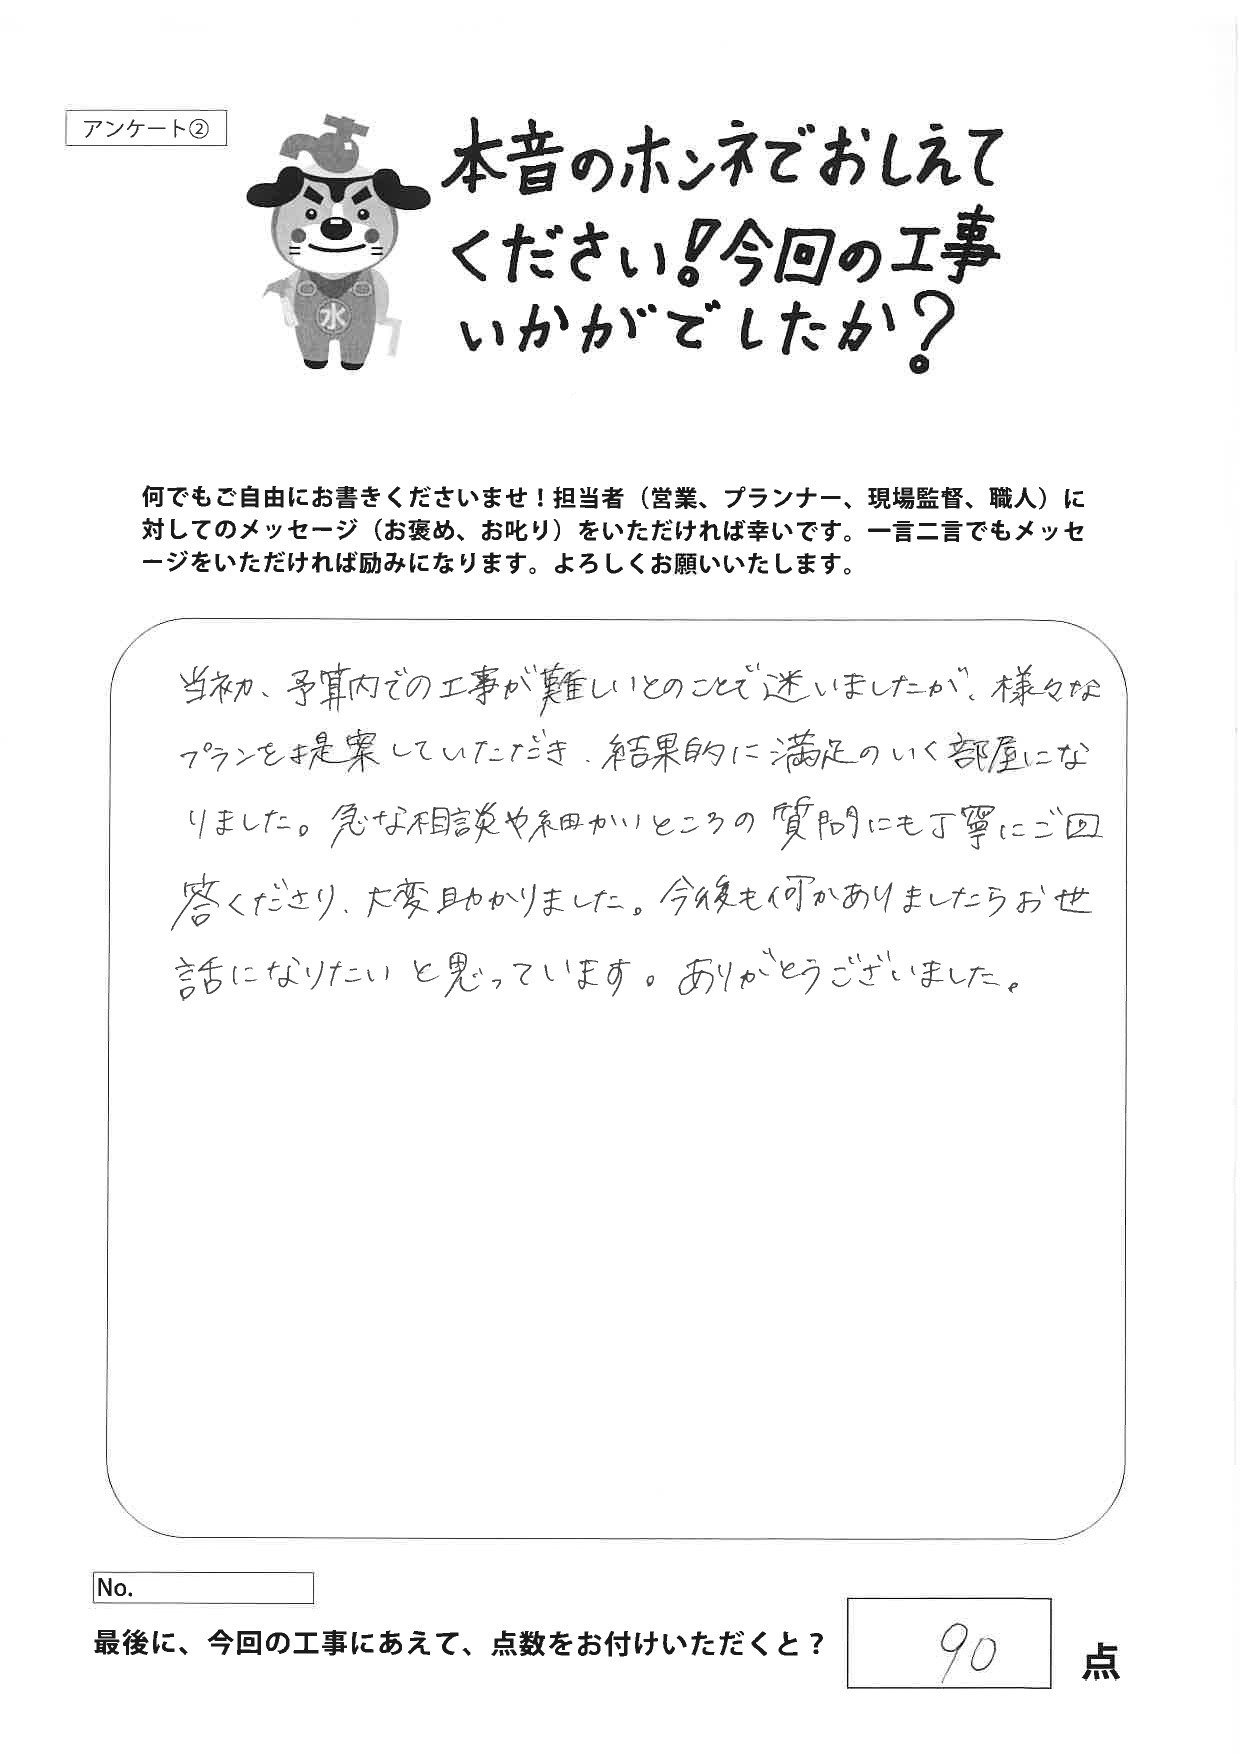 アンケート②
本音のホンネでおしえて
ください!今回の工事
いかがでしたか?
水
何でもご自由にお書きくださいませ!担当者(営業、プランナー、現場監督、職人)に
対してのメッセージ(お褒め、お叱り)をいただければ幸いです。一言二言でもメッセ
ージをいただければ励みになります。よろしくお願いいたします。
当初、予算内での工事が難しいとのことで迷いましたが、様々な
プランを提案していただき、結果的に満足のいく部屋にな
りました。急な相談や細かいところの質問にも丁寧にご回
答くださり、大変助かりました。今後も何かありましたらお世
話になりたいと思っています。ありがとうございました。
No.
最後に、今回の工事にあえて、点数をお付けいただくと?
90
点